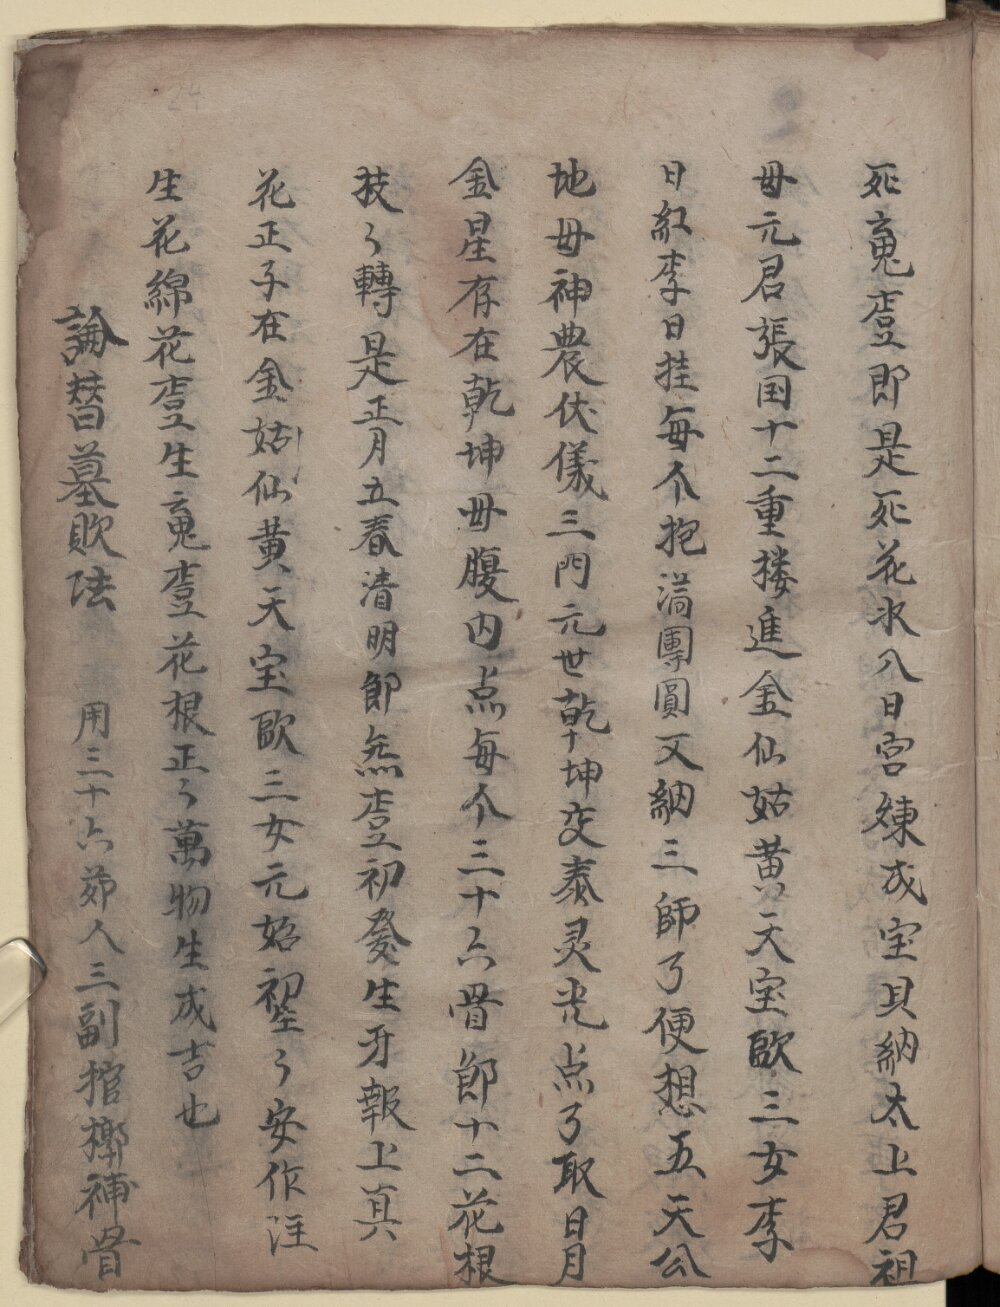 死魂臺即是死花水八日宮煉成宝貝納太上君祖
毋元君張田十二重楼進金仙姑黄天宝歐三女李
日紅李日挂每个抱滿團圓又納三師了便想五天公
地毋神農伏儀三門元世乾坤交泰灵光点了取日月
金星存在乾坤毋腹内点每个三十六骨節十二花根
枝々轉是正月立春清明節無臺初發生牙報上真
花正子在金姑仙黄天宝歐三女元始初望々安作注
生花綿花臺生魂臺花根正々萬物生成吉也
論替墓敗法 用三十六茆人三副棺槨補骨